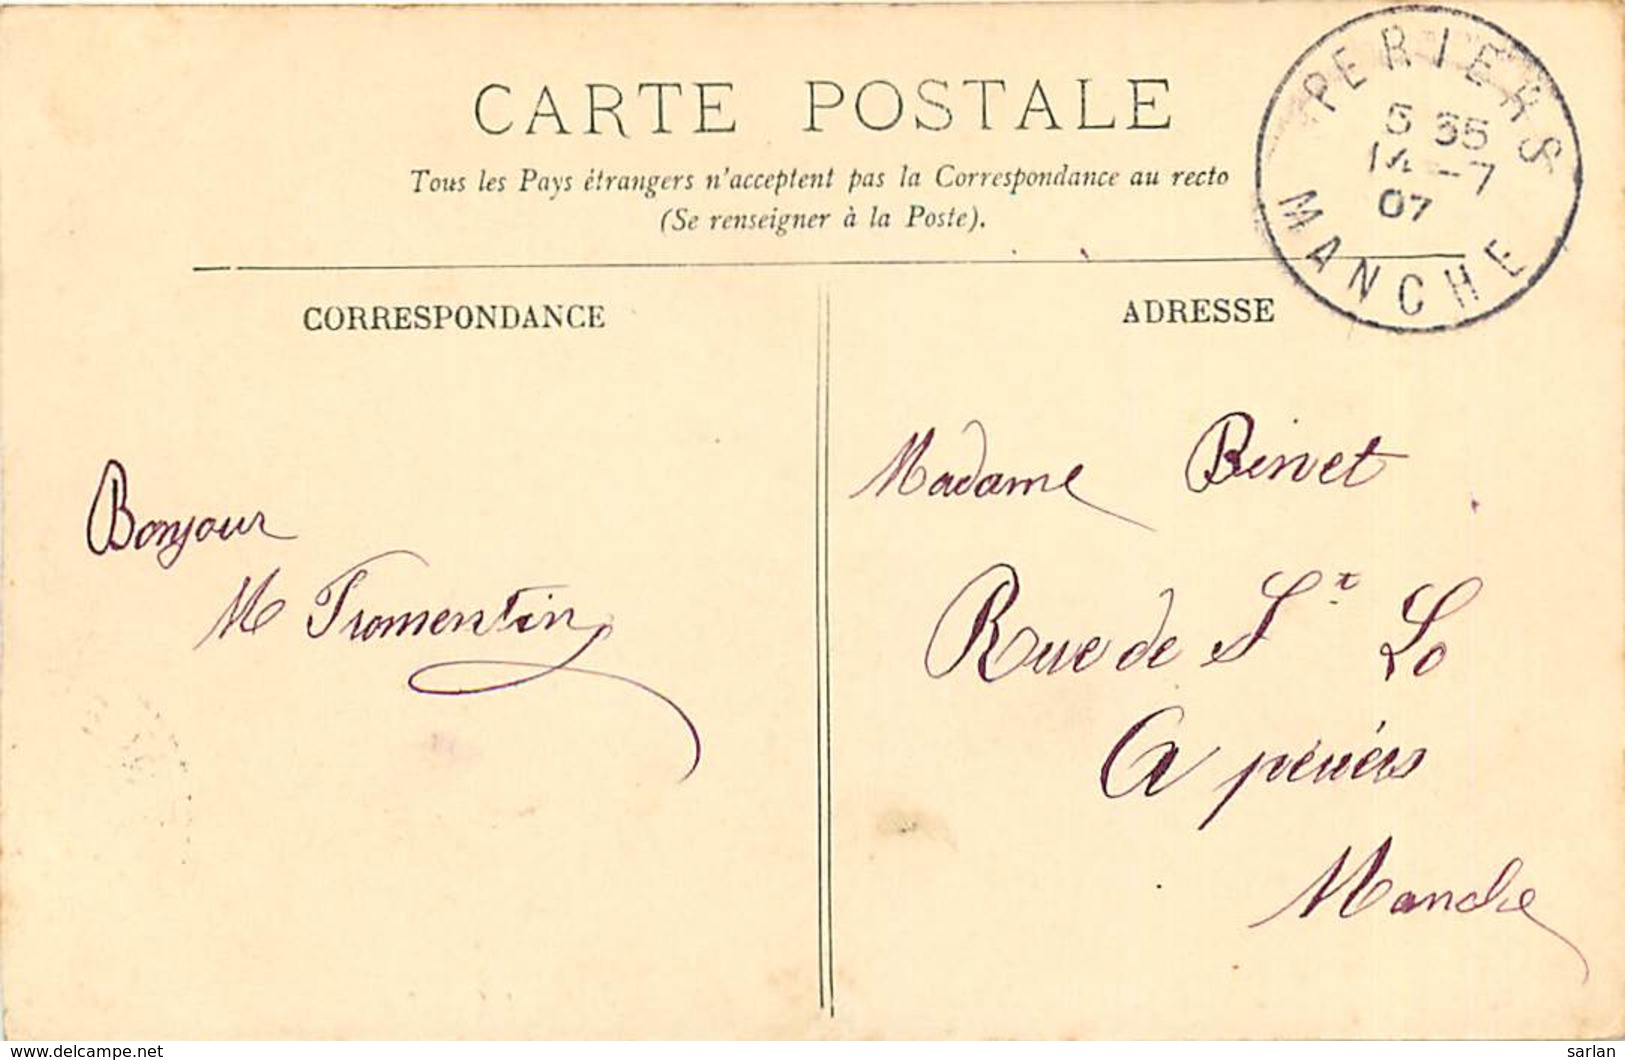 CARTE POSTALE
Tous les Pays étrangers n'acceptent pas la Correspondance au recto
(Se renseigner à la Poste).
PERIERS
5 35
14 -7
07
MANCHE
CORRESPONDANCE
ADRESSE
Bonjour
M Fromentin
Madame Binet
Rue de St Lo
A périérs
Manche
www.delcampe.net
sarlan